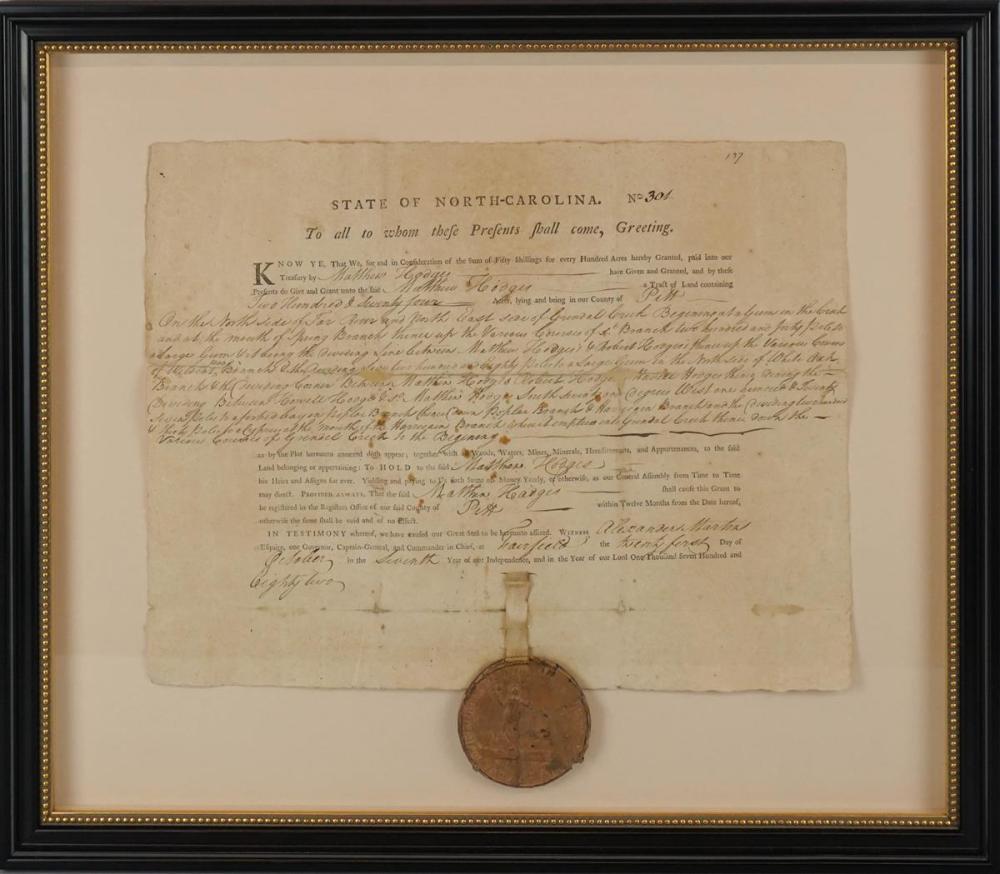 137
STATE OF NORTH-CAROLINA. No 301
To all to whom these Presents shall come, Greeting.
KNOW YE, That We, for and in Consideration of the Sum of Fifty Shillings for every Hundred Acres hereby Granted, paid into our
Treasury by Matthew Hodges have Given and Granted, and by these
Presents do Give and Grant unto the said Matthew Hodges a Tract of Land containing
Two Hundred & Seventy four Acres, lying and being in our County of Pitt
On the North side of Tar River and North East side of Grindel Creek Begining at a Gum in the Creek
and at the mouth of Spring Branch thence up the Various Courses of sd Branch two hundred and forty Poles to
a large Gum it being the Dividing Line between Matthew Hodges & Robert Hodges thence up the Various Courses
of Branch & the Dividing two hundred and Eighty Poles to a large Gum in the North side of White Oak
Branch & the Dividing Corner Between Matthew Hodges Robert Hodges Hodges thence along the
Dividing Between Howell Hodges & sd Matthew Hodges South Seventy one Degrees West one hundred & Twenty
Seven Poles to a forked bay on Poplar Branch thence down Poplar Branch & Hurricain Branch and the Dividing two hundred
& Poles to a Cypress at the mouth of the Hurricain Branch where it empties into Grindel Creek thence down the
Various Courses of Grindel Creek to the Begining
as by the Plat hereunto annexed doth appear; together with all Woods, Waters, Mines, Minerals, Hereditaments, and Appurtenances, to the said
Land belonging or appertaining: To HOLD to the said Matthew Hodges
his Heirs and Assigns for ever. Yielding and paying to Us such Sums of Money Yearly, or otherwise, as our General Assembly from Time to Time
may direct. PROVIDED ALWAYS, That the said Matthew Hodges shall cause this Grant to
be registered in the Registers Office of our said County of Pitt within Twelve Months from the Date hereof,
otherwise the same shall be void and of no Effect.
IN TESTIMONY whereof, we have caused our Great Seal to be hereunto affixed. WITNESS Alexander Martin
Esquire, our Governor, Captain-General, and Commander in Chief, at Fairfield the twenty first Day of
October in the Seventh Year of our Independence, and in the Year of our Lord One Thousand Seven Hundred and
Eighty two